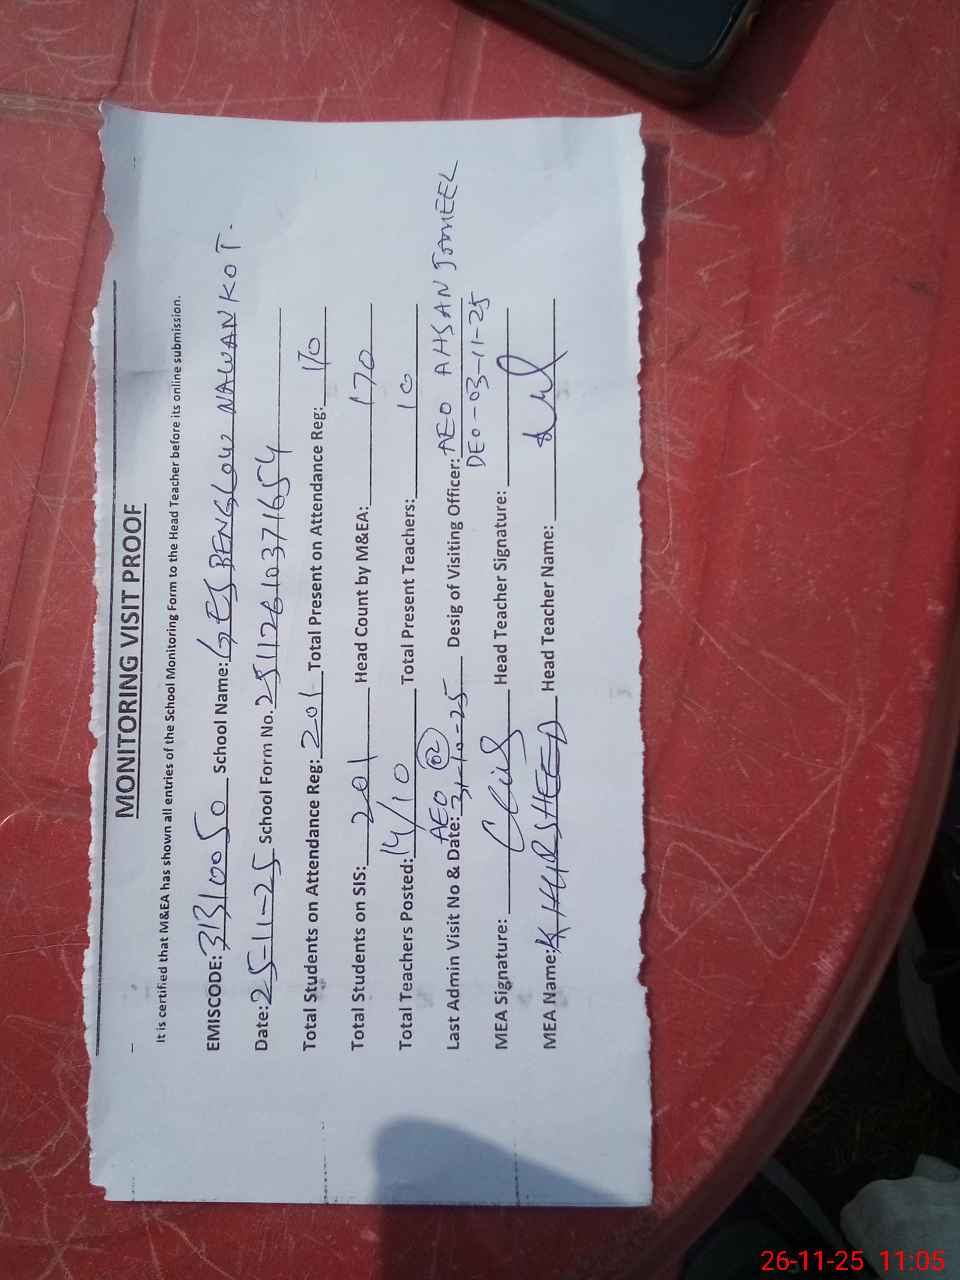 MONITORING VISIT PROOF
It is certified that M&EA has shown all entries of the School Monitoring Form to the Head Teacher before its online submission.
EMISCODE: 31310050 School Name: GES BENGLOW NAWANKOT.
Date: 25-11-25 School Form No. 25112610371654
Total Students on Attendance Reg: 201 Total Present on Attendance Reg: 170
Total Students on SIS: 201 Head Count by M&EA: 170
Total Teachers Posted: 14/10 Total Present Teachers: 10
Last Admin Visit No & Date: AEO 02 31-10-25 Desig of Visiting Officer: AEO AHSAN JAMEEL
DEO-03-11-25
MEA Signature: Head Teacher Signature:
MEA Name: KHURSHEED Head Teacher Name:
26-11-25 11:05